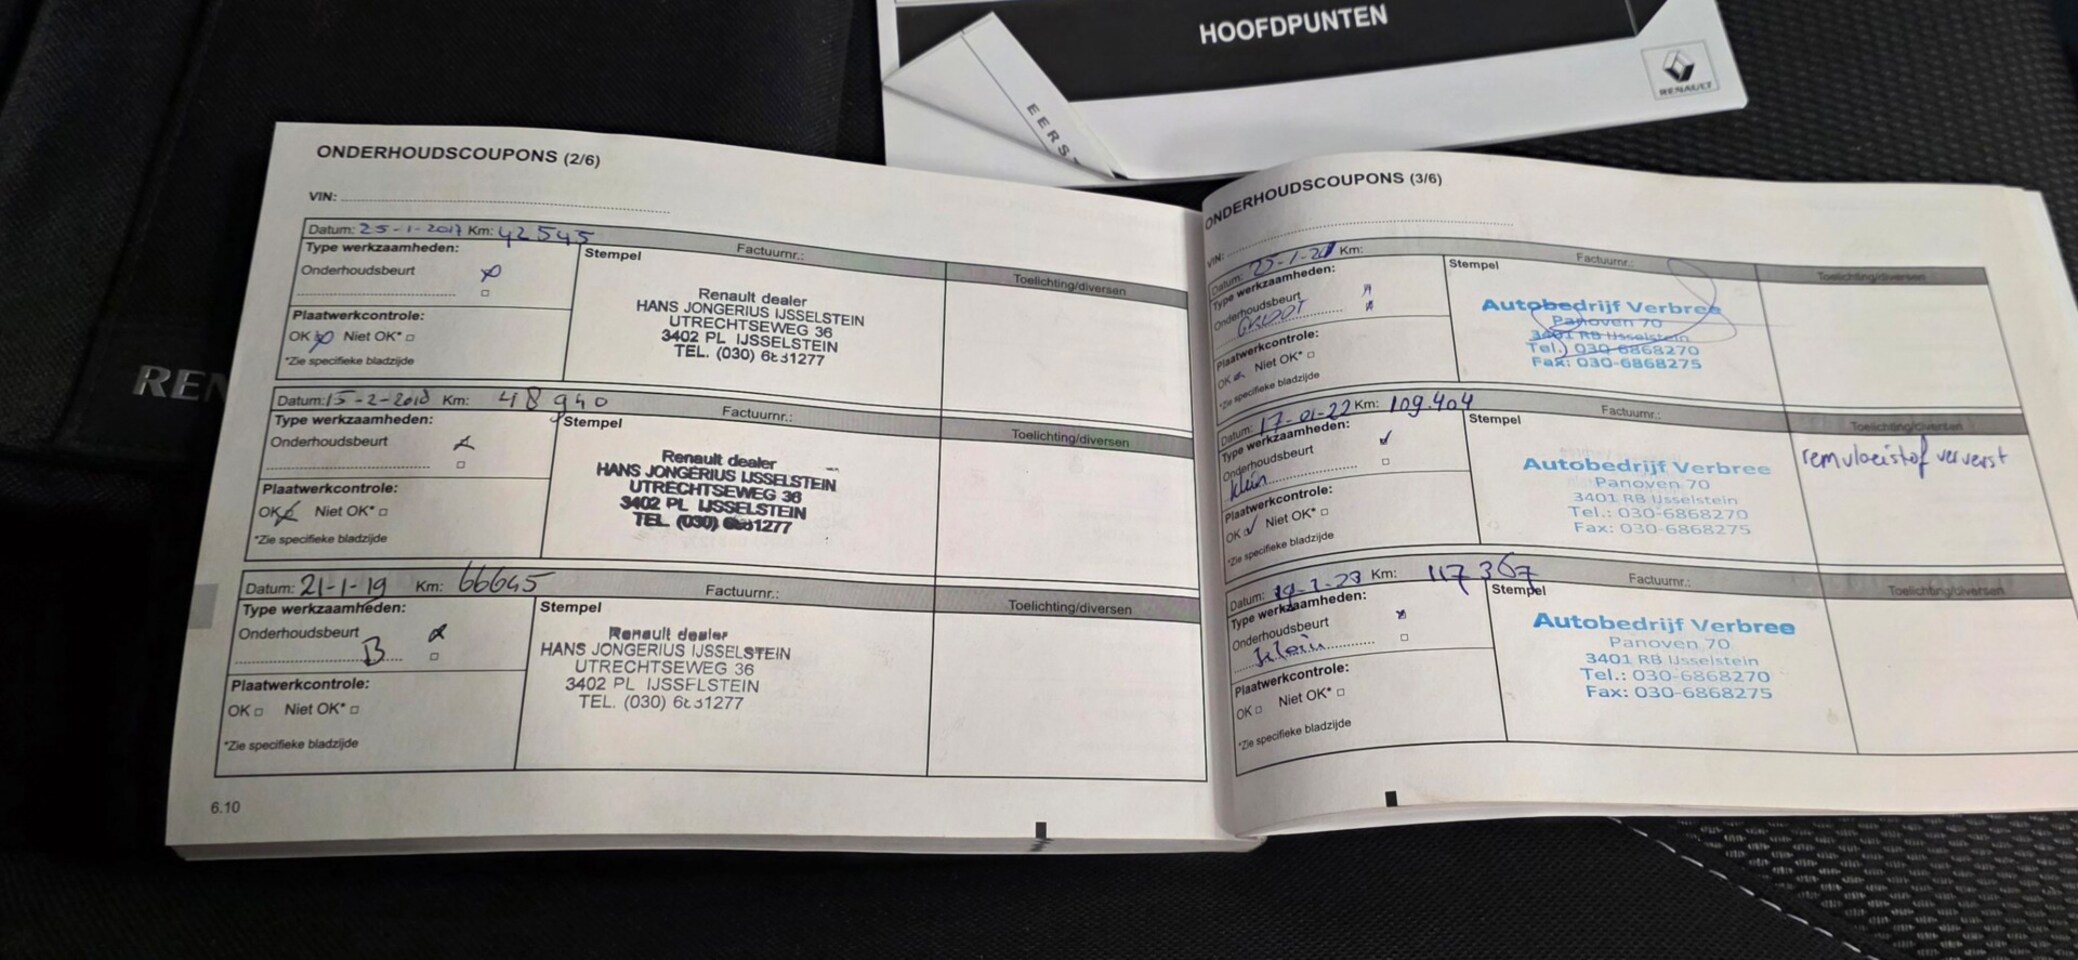 HOOFDPUNTEN
RENAULT
EERS
REN
ONDERHOUDSCOUPONS (2/6)
VIN:
Datum: 25-1-2017 Km: 42545
Factuurnr.:
Type werkzaamheden:
Stempel
Toelichting/diversen
Onderhoudsbeurt
Renault dealer
HANS JONGERIUS IJSSELSTEIN
UTRECHTSEWEG 36
3402 PL IJSSELSTEIN
TEL. (030) 6881277
Plaatwerkcontrole:
OK Niet OK*
*Zie specifieke bladzijde
Datum: 15-2-2018 Km: 48940
Factuurnr.:
Type werkzaamheden:
Stempel
Toelichting/diversen
Onderhoudsbeurt
Renault dealer
HANS JONGERIUS IJSSELSTEIN
UTRECHTSEWEG 36
3402 PL IJSSELSTEIN
TEL. (030) 6881277
Plaatwerkcontrole:
OK Niet OK*
*Zie specifieke bladzijde
Datum: 21-1-19 Km: 66645
Factuurnr.:
Type werkzaamheden:
Stempel
Toelichting/diversen
Onderhoudsbeurt
B
Renault dealer
HANS JONGERIUS IJSSELSTEIN
UTRECHTSEWEG 36
3402 PL IJSSELSTEIN
TEL. (030) 6881277
Plaatwerkcontrole:
OK Niet OK*
*Zie specifieke bladzijde
6.10
ONDERHOUDSCOUPONS (3/6)
VIN:
Datum: Km:
Factuurnr.:
Type werkzaamheden:
Stempel
Toelichting/diversen
Onderhoudsbeurt
GROOT
Autobedrijf Verbree
Panoven 70
3401 RB IJsselstein
Tel.: 030-6868270
Fax: 030-6868275
Plaatwerkcontrole:
OK Niet OK*
*Zie specifieke bladzijde
Datum: 17-01-22 Km: 109.404
Factuurnr.:
Type werkzaamheden:
Stempel
Toelichting/diversen
Onderhoudsbeurt
klein
remvloeistof ververst
Autobedrijf Verbree
Panoven 70
3401 RB IJsselstein
Tel.: 030-6868270
Fax: 030-6868275
Plaatwerkcontrole:
OK Niet OK*
*Zie specifieke bladzijde
Datum: Km: 117367
Factuurnr.:
Type werkzaamheden:
Stempel
Toelichting/diversen
Onderhoudsbeurt
klein
Autobedrijf Verbree
Panoven 70
3401 RB IJsselstein
Tel.: 030-6868270
Fax: 030-6868275
Plaatwerkcontrole:
OK Niet OK*
*Zie specifieke bladzijde